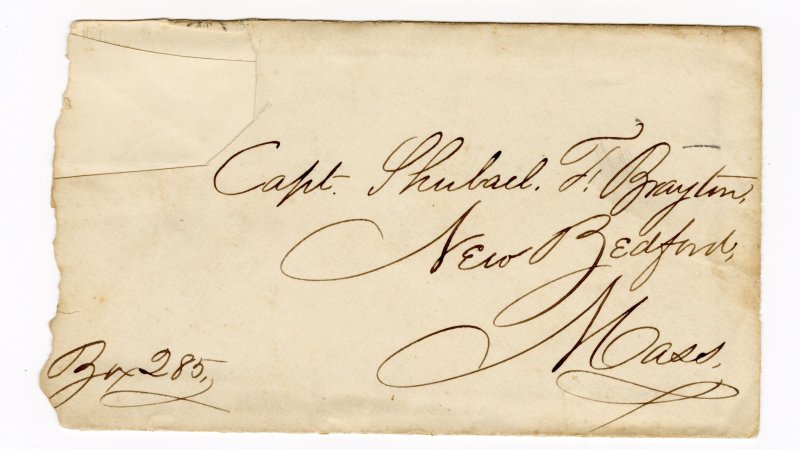 Capt. Shubael. F. Brayton,
New Bedford,
Mass.
Box 285,